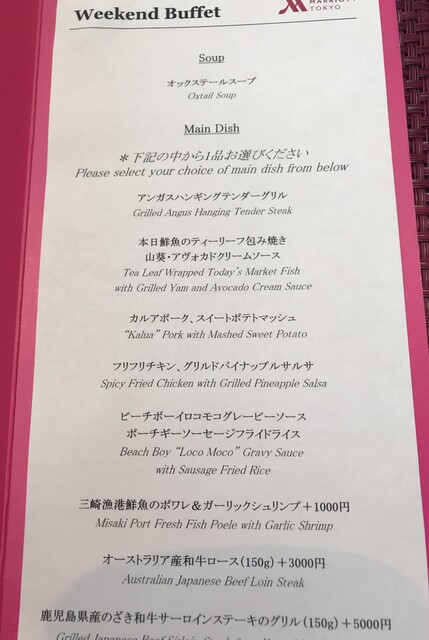 MARRIOTT
TOKYO
Weekend Buffet
Soup
オックステールスープ
Oxtail Soup
Main Dish
＊下記の中から1品お選びください
Please select your choice of main dish from below
アンガスハンギングテンダーグリル
Grilled Angus Hanging Tender Steak
本日鮮魚のティーリーフ包み焼き
山葵・アヴォカドクリームソース
Tea Leaf Wrapped Today's Market Fish
with Grilled Yam and Avocado Cream Sauce
カルアポーク、スイートポテトマッシュ
"Kalua" Pork with Mashed Sweet Potato
フリフリチキン、グリルドパイナップルサルサ
Spicy Fried Chicken with Grilled Pineapple Salsa
ビーチボーイロコモコグレービーソース
ポーチギーソーセージフライドライス
Beach Boy "Loco Moco" Gravy Sauce
with Sausage Fried Rice
三崎漁港鮮魚のポワレ＆ガーリックシュリンプ＋1000円
Misaki Port Fresh Fish Poele with Garlic Shrimp
オーストラリア産和牛ロース（150g）＋3000円
Australian Japanese Beef Loin Steak
鹿児島県産のざき和牛サーロインステーキのグリル（150g）＋5000円
Grilled Japanese Beef Sirloin Steak